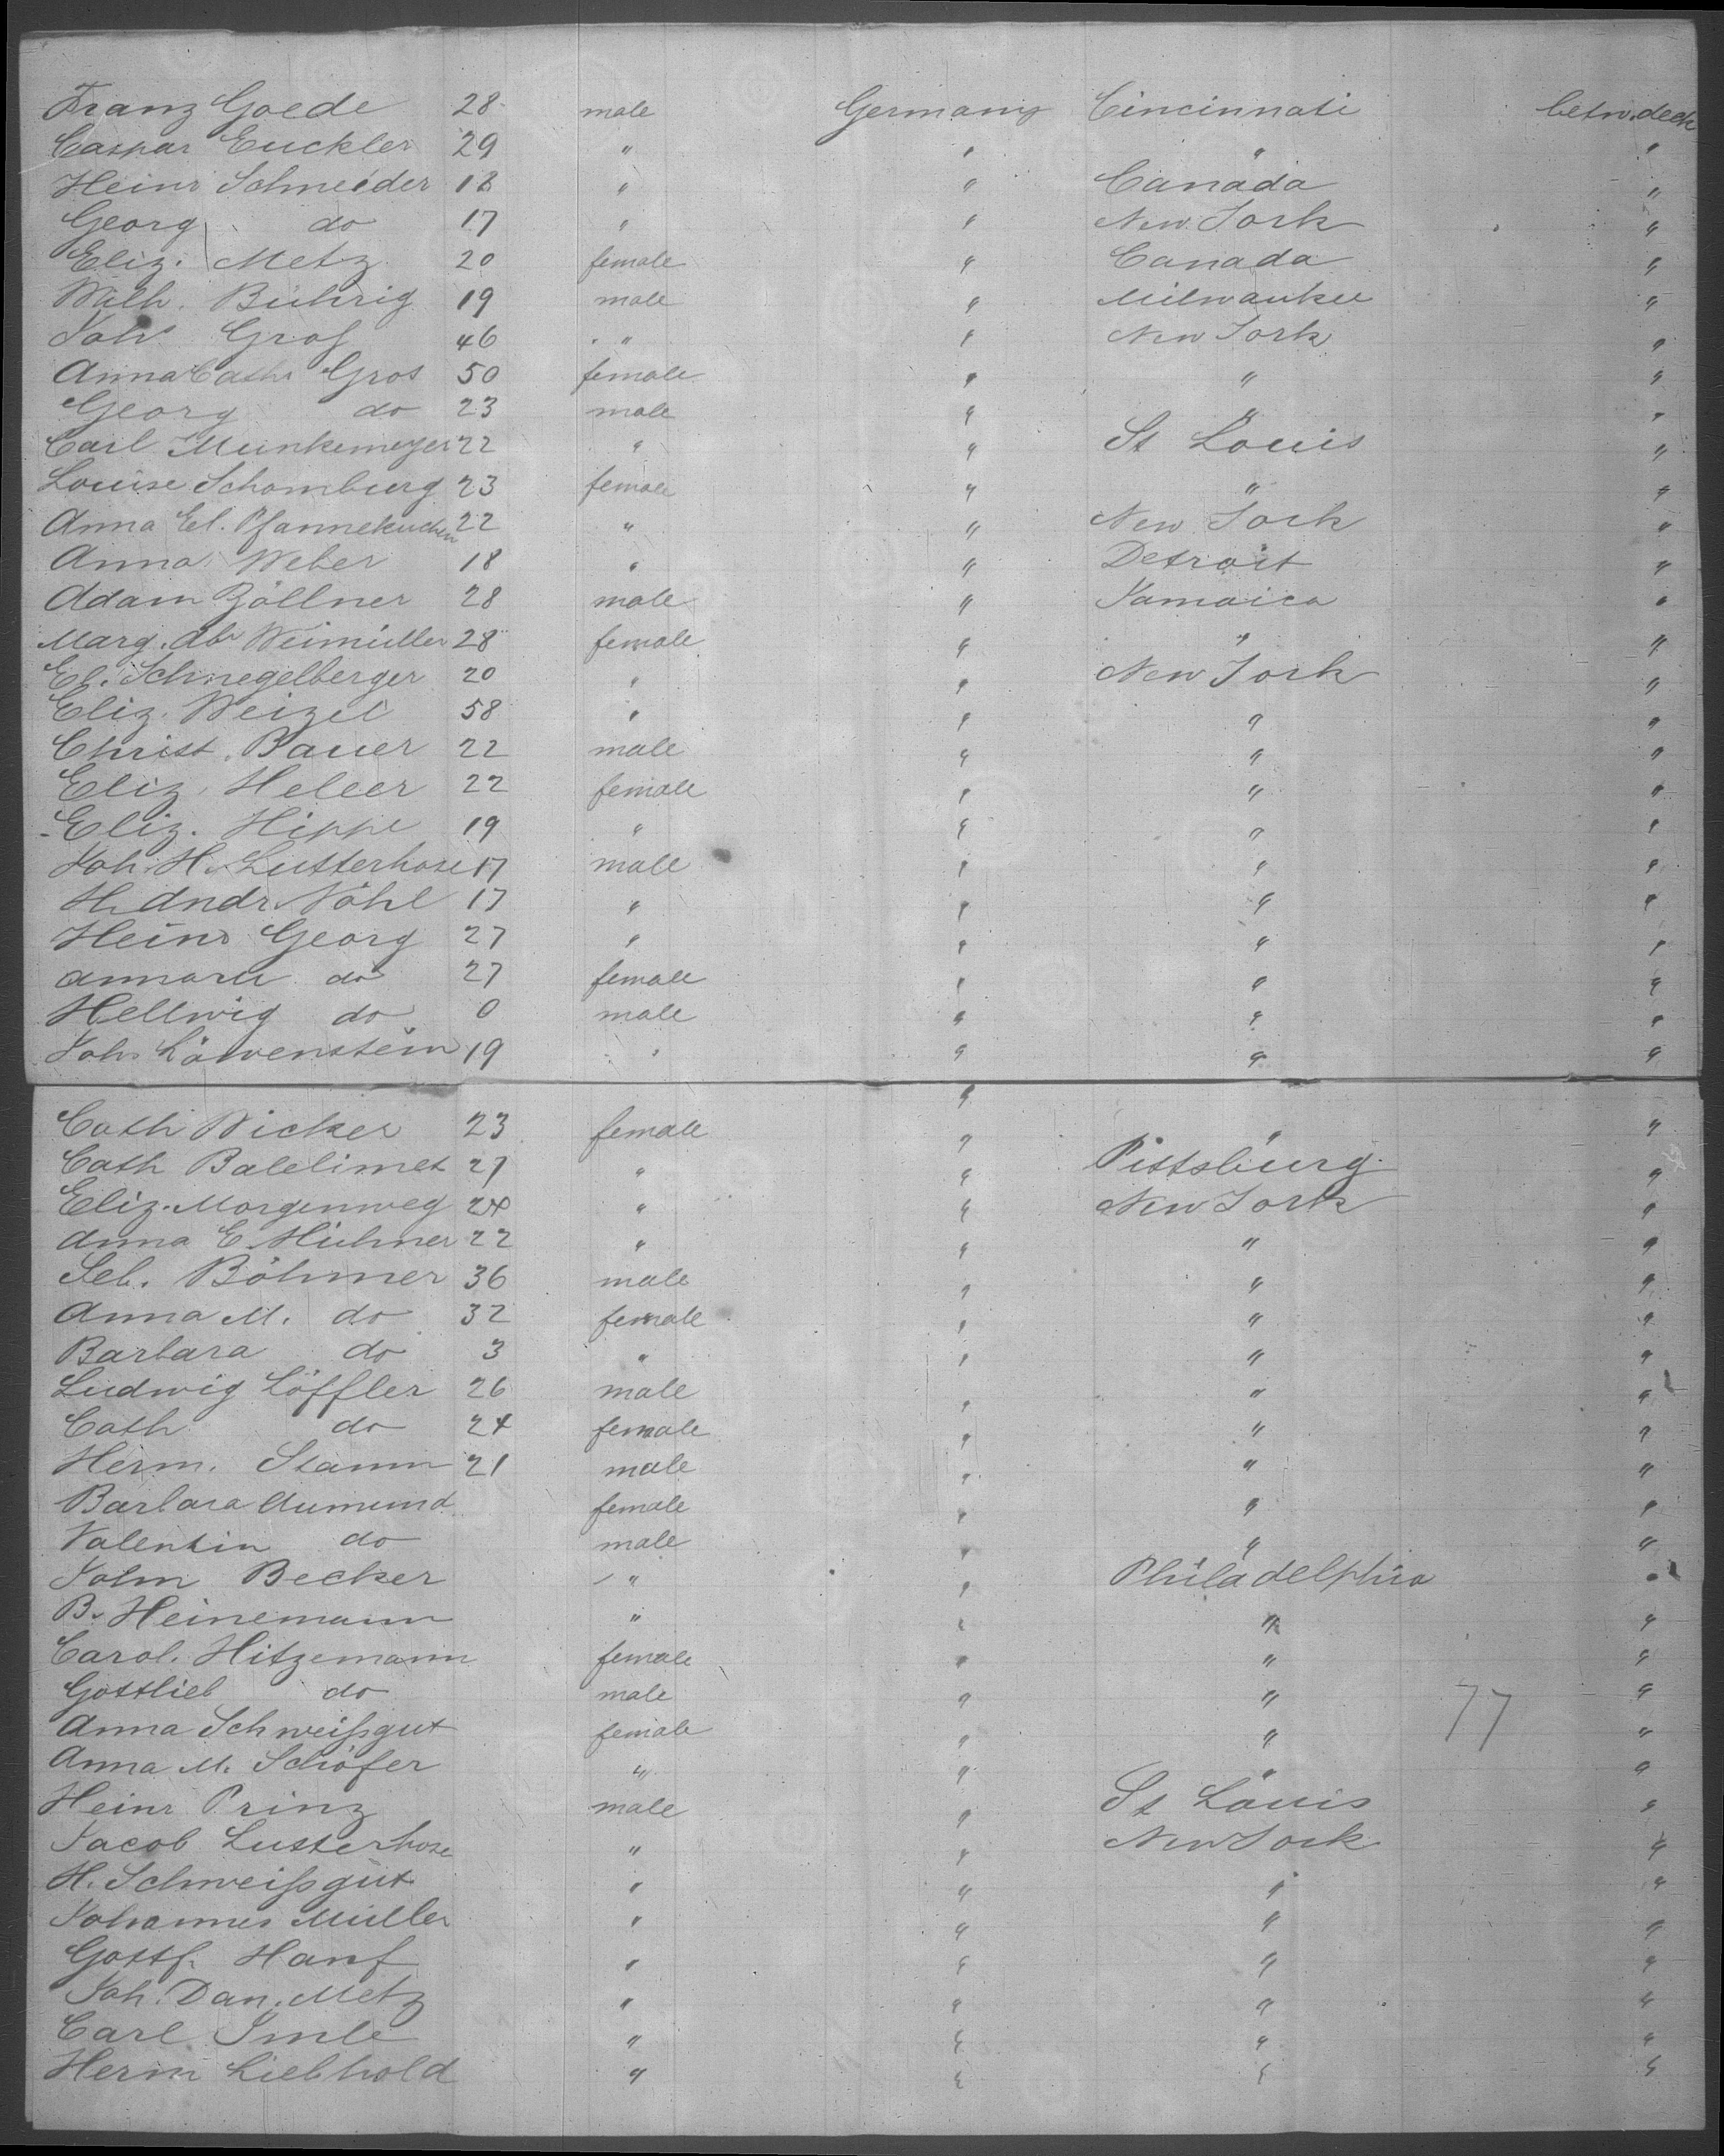 Franz Goede 28 male Germany Cincinnati betw. deck
Caspar Euckler 29 " " " "
Heinr Schneider 18 " " Canada "
Georg do 17 " " New York "
Eliz. Metz 20 female " Canada "
Wilh. Bührig 19 male " Milwaukee "
Johs Grof 46 " " New York "
Anna Cath. Gros 50 female " " "
Georg do 23 male " " "
Carl Munkemeyer 22 " " St Louis "
Louise Schomburg 23 female " " "
Anna El. Pfannekuchen 22 " " New York "
Anna Weber 18 " " Detroit "
Adam Zöllner 28 male " Jamaica "
Marg. Weimüller 28 female " " "
El. Schnegelberger 20 " " New York "
Eliz. Weizel 58 " " " "
Christ. Bauer 22 male " " "
Eliz. Heleer 22 female " " "
Eliz. Hippe 19 " " " "
Joh. H. Lutterhose 17 male " " "
H. Andr. Nöhl 17 " " " "
Heinr Georg 27 " " " "
do 27 female " " "
Hellwig do 0 male " " "
Johs Löwenstein 19 " " " "
"
Cath Wicker 23 female " " "
Cath 27 " " Pittsburg "
Eliz. Morgenweg 24 " " New York "
Anna E. Hühner 22 " " " "
Seb. Böhmer 36 male " " "
Anna M. do 32 female " " "
Barbara do 3 " " " "
Ludwig Löffler 26 male " " "
Cath do 24 female " " "
Herm. Stamm 21 male " " "
Barbara Aumund female " " "
Valentin do male " " "
John Becker " " Philadelphia "
B. Heinemann " " " "
Carol. Hitzemann female " " "
Gottlieb do male " " 77 "
Anna Schweißgut female " " "
Anna M. Schöfer " " " "
Heinr Prinz male " St Louis "
Jacob Lutterhose " " New York "
H. Schweißgut " " " "
Johannes Müller " " " "
Gottf. Hanf " " " "
Joh. Dan. Metz " " " "
Carl Imle " " " "
Herm Liebhold " " " "